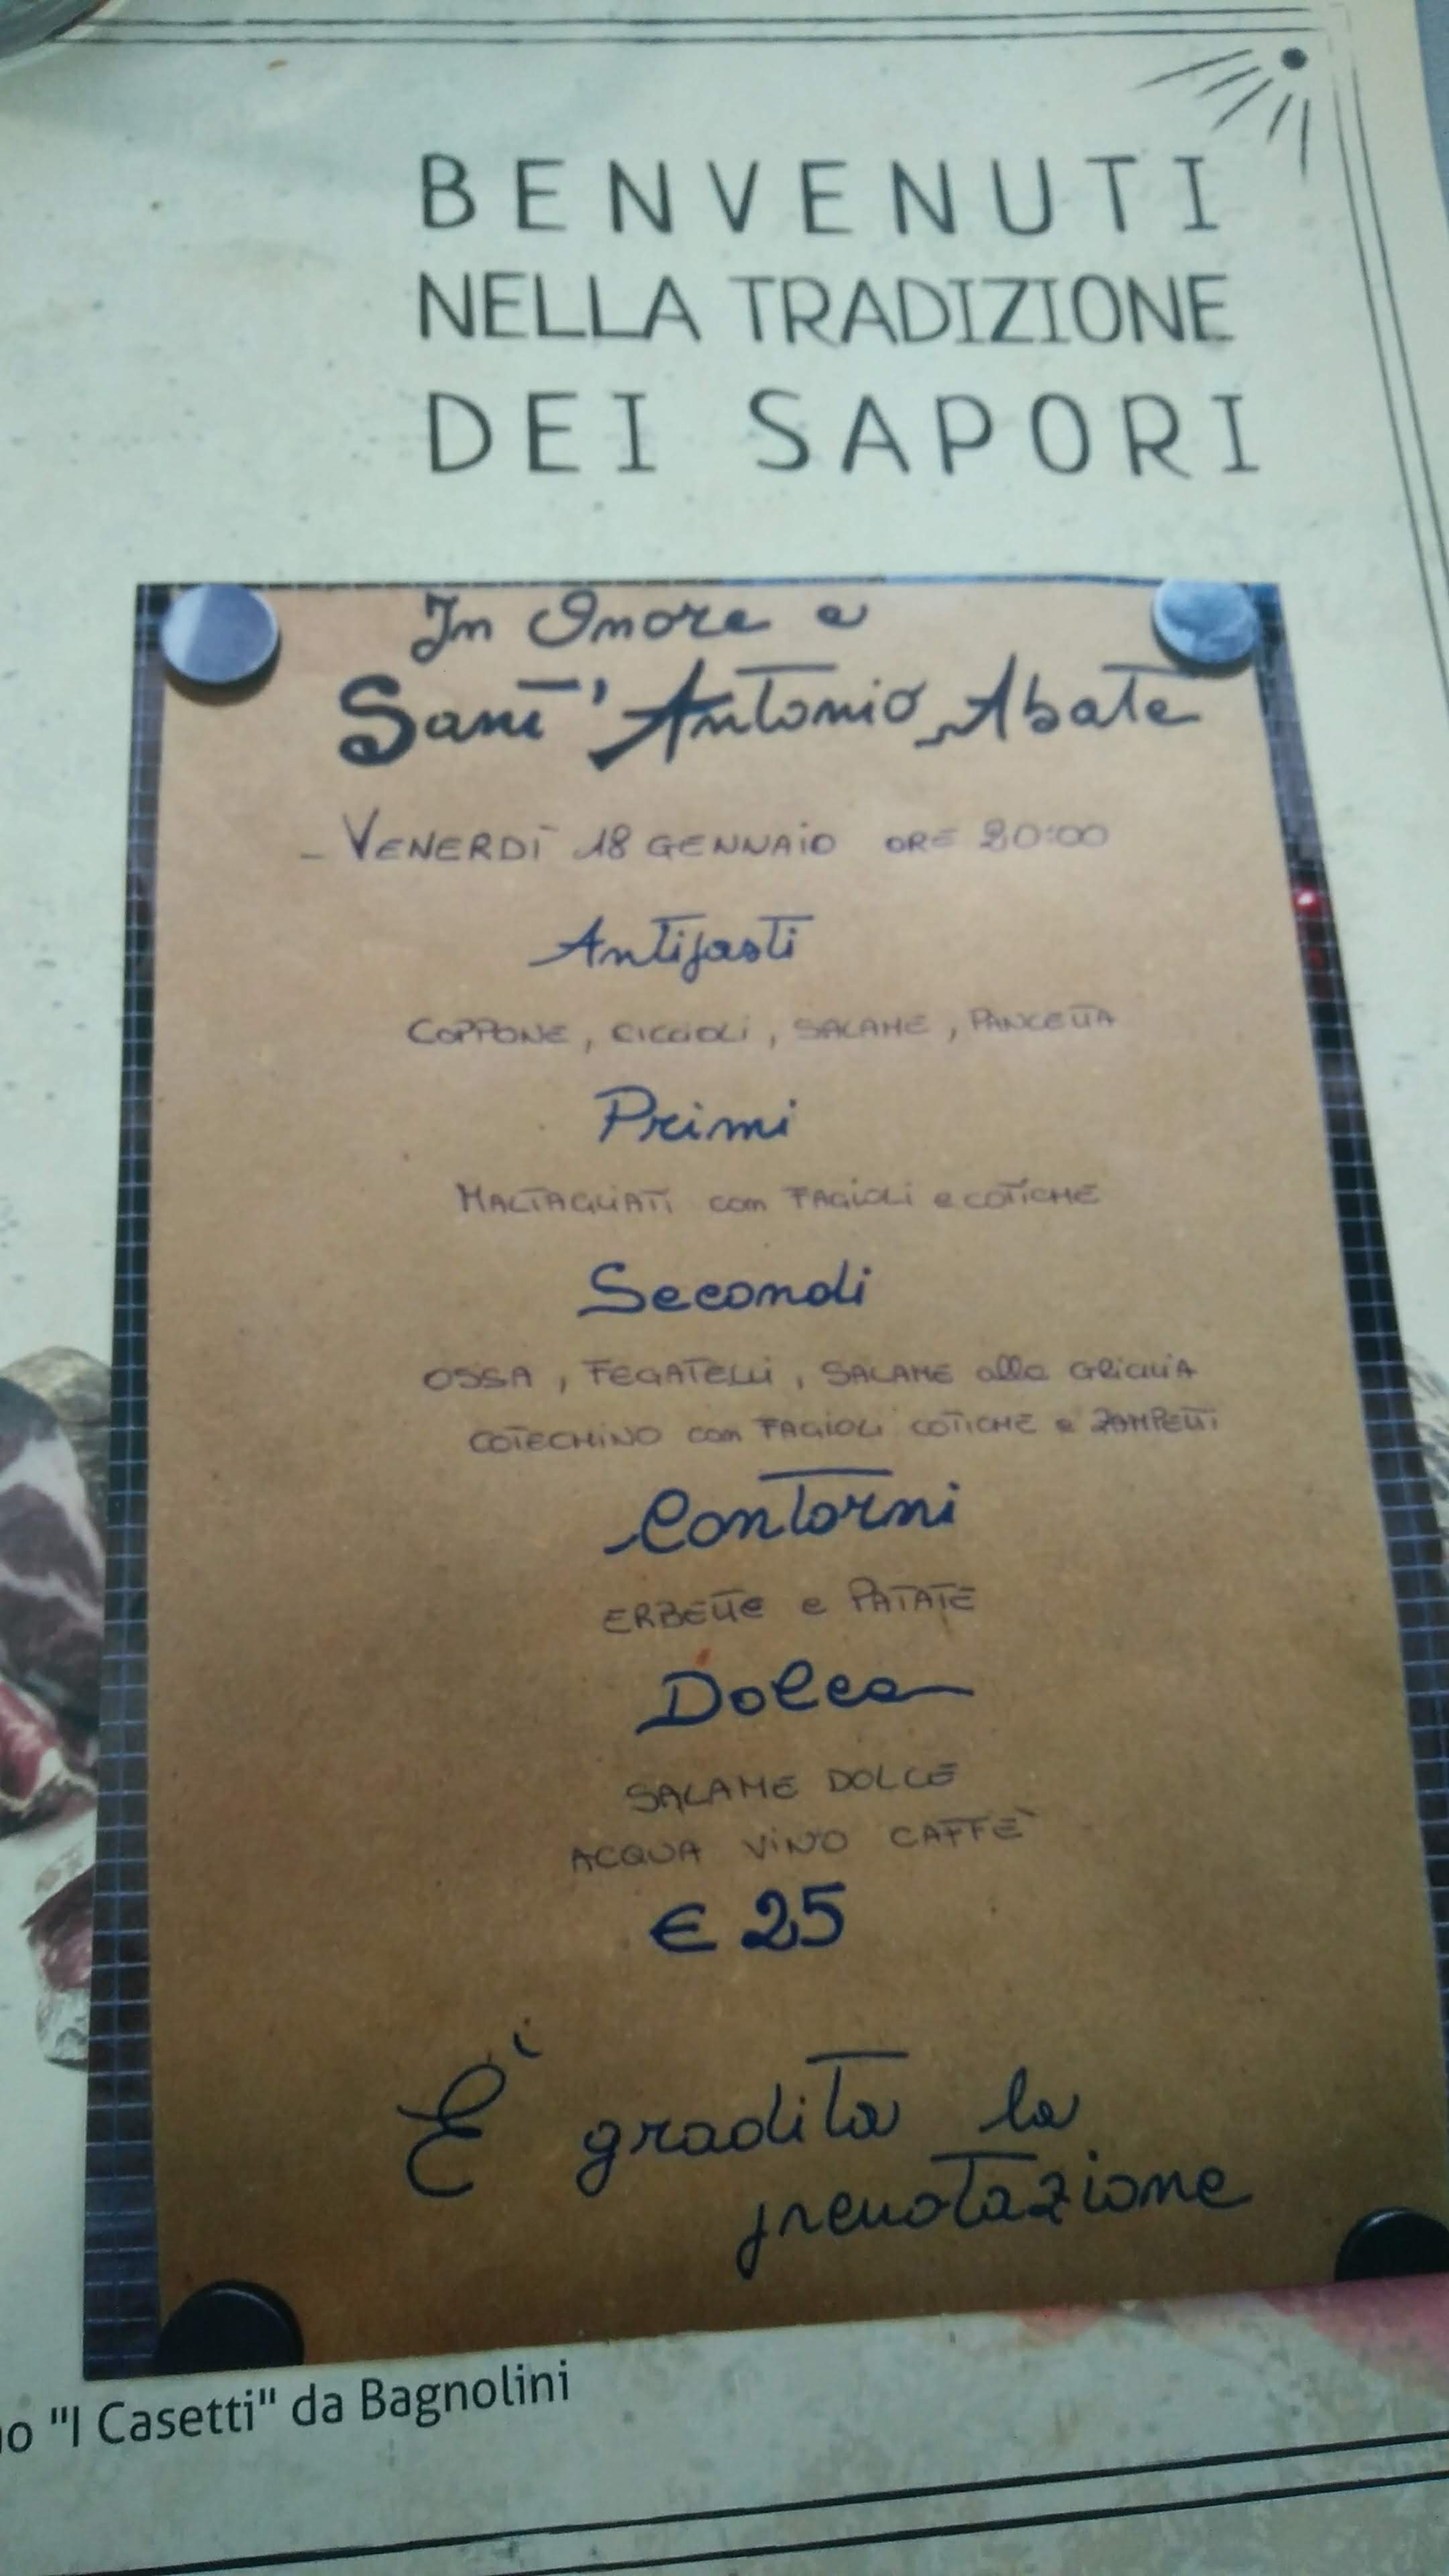 BENVENUTI
NELLA TRADIZIONE
DEI SAPORI
In Onore a
Sant'Antonio Abate
- VENERDÌ 18 GENNAIO ORE 20:00
Antipasti
COPPONE, CICCIOLI, SALAME, PANCETTA
Primi
MALTAGLIATI con FAGIOLI e COTICHE
Secondi
OSSA, FEGATELLI, SALAME alla GRIGLIA
COTECHINO con FAGIOLI COTICHE e ZAMPETTI
Contorni
ERBETTE e PATATE
Dolce
SALAME DOLCE
ACQUA VINO CAFFÈ
€ 25
È gradita la
prenotazione
"I Casetti" da Bagnolini